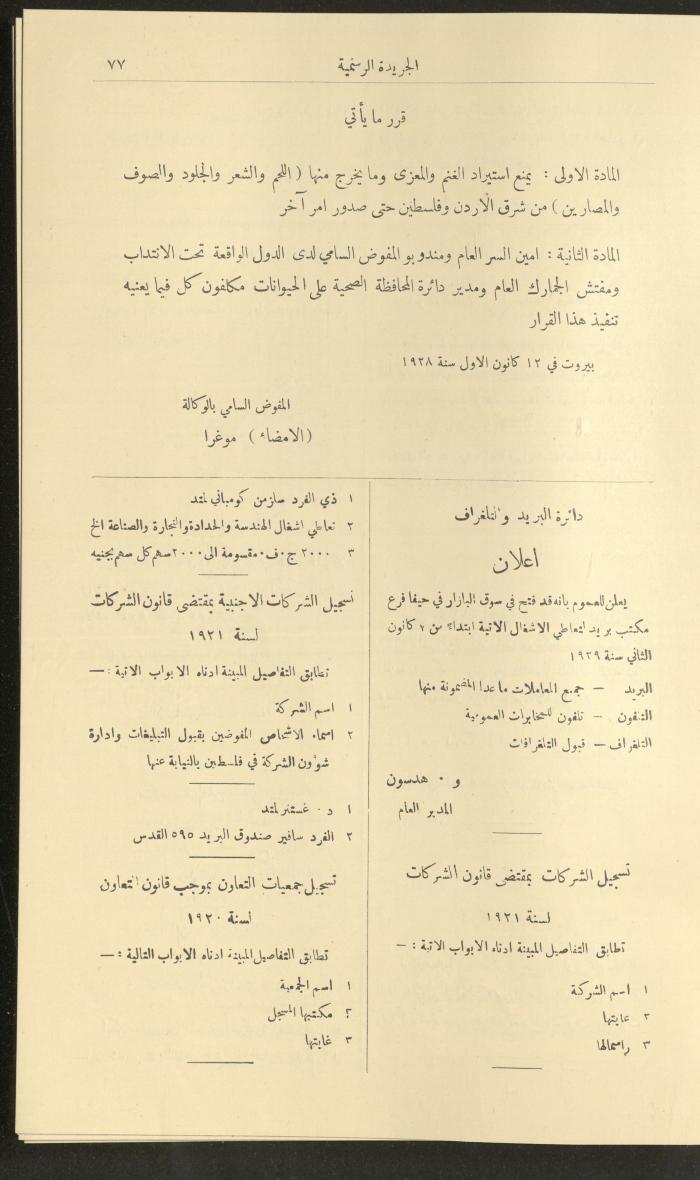 الجريدة الرسمية
٧٧
قرر ما يأتي
المادة الاولى : يمنع استيراد الغنم والمعزى وما يخرج منها ( اللحم والشعر والجلود والصوف
والمصارين ) من شرق الاردن وفلسطين حتى صدور امر آخر
المادة الثانية : امين السر العام ومندوبو المفوض السامي لدى الدول الواقعة تحت الانتداب
ومفتش الجمارك العام ومدير دائرة المحافظة الصحية على الحيوانات مكلفون كل فيما يعنيه
تنفيذ هذا القرار
بيروت في ١٢ كانون الاول سنة ١٩٢٨
المفوض السامي بالوكالة
( الامضاء ) موغرا
دائرة البريد والتلغراف
اعلان
يعلن للعموم بانه قد فتح في سوق البازار في حيفا فرع
مكتب بريد لتعاطي الاشغال الاتية ابتداءً من ٢ كانون
الثاني سنة ١٩٢٩
البريد — جميع المعاملات ما عدا المضمونة منها
التلفون — تلفون للمخابرات العمومية
التلغراف — قبول التلغرافات
و ٠ هدسون
المدير العام
تسجيل الشركات بمقتضى قانون الشركات
لسنة ١٩٢١
تطابق التفاصيل المبينة ادناه الابواب الاتية : —
١ اسم الشركة
٢ غايتها
٣ راسمالها
١ ذي الفرد سازمن كومباني لمتد
٢ تعاطي اشغال الهندسة والحدادة والنجارة والصناعة الخ
٣ ٢٠٠٠ ج٠ف٠ مقسومة الى ٢٠٠٠ سهم كل سهم بجنيه
تسجيل الشركات الاجنبية بمقتضى قانون الشركات
لسنة ١٩٢١
تطابق التفاصيل المبينة ادناه الابواب الاتية : —
١ اسم الشركة
٢ اسماء الاشخاص المفوضين بقبول التبليغات وادارة
شؤون الشركة في فلسطين بالنيابة عنها
١ د ٠ غستنر لمتد
٢ الفرد سافير صندوق البريد ٥٩٥ القدس
تسجيل جمعيات التعاون بموجب قانون التعاون
لسنة ١٩٢٠
تطابق التفاصيل المبينة ادناه الابواب التالية : —
١ اسم الجمعية
٢ مكتبها المسجل
٣ غايتها